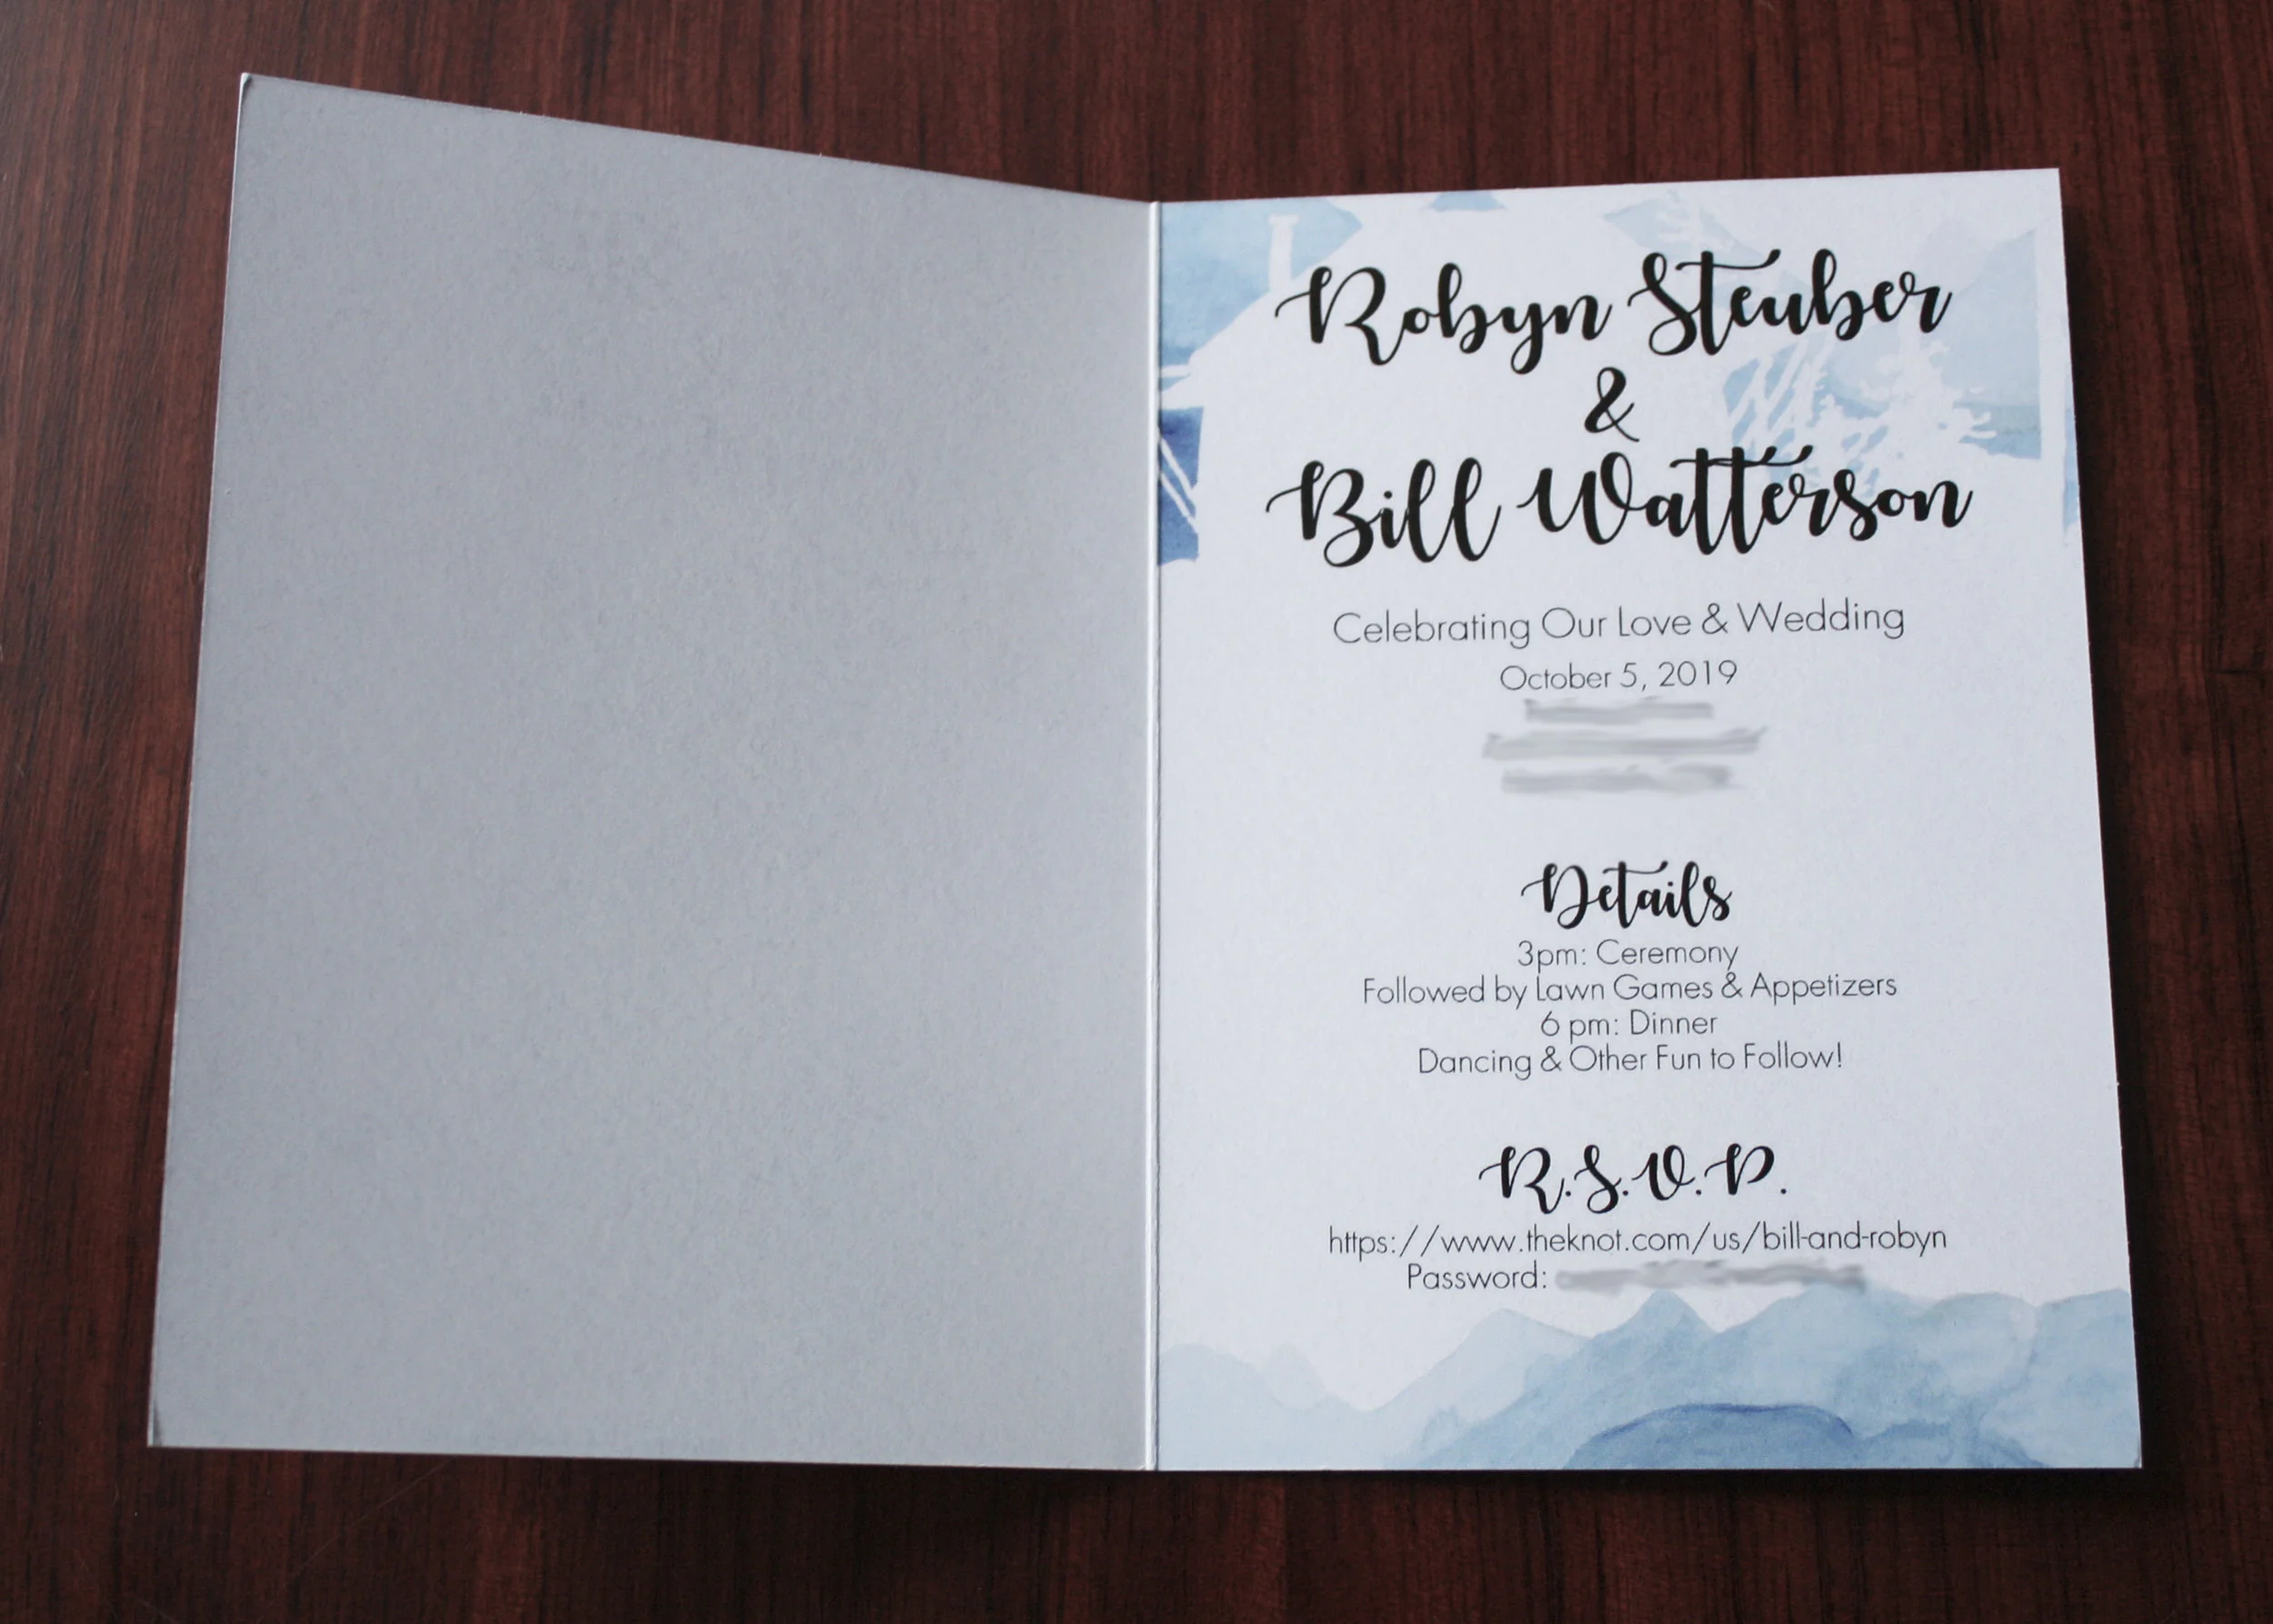 Robyn Steuber
&
Bill Watterson
Celebrating Our Love & Wedding
October 5, 2019
Details
3pm: Ceremony
Followed by Lawn Games & Appetizers
6 pm: Dinner
Dancing & Other Fun to Follow!
R.S.V.P.
https://www.theknot.com/us/bill-and-robyn
Password: